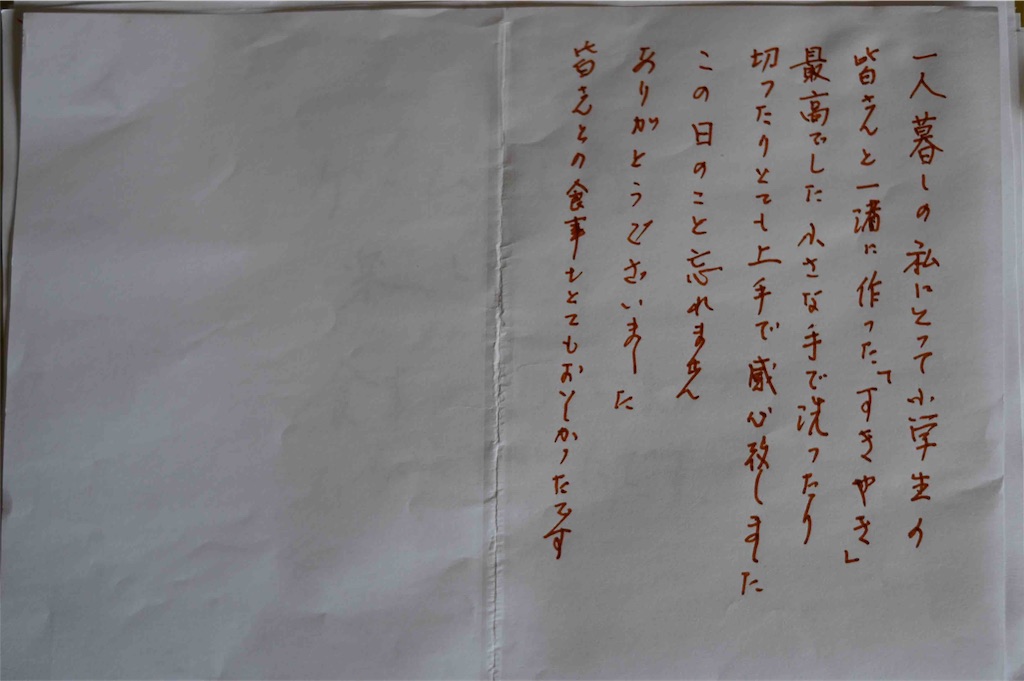 一人暮しの私にとって小学生の
皆さんと一渚に作った「すきやき」
最高でした小さな手で洗ったり
切ったりとても上手で感心致しました
この日のこと忘れません
ありがとうございました
皆さんとの食事もとてもおいしかったです